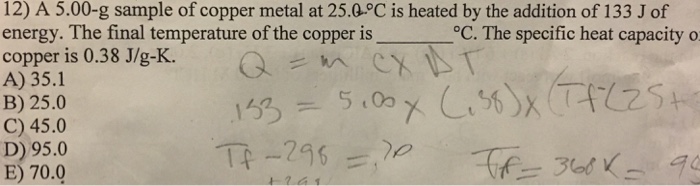 12) A 5.00-g sample of copper metal at 25.0 °C is heated by the addition of 133 J of
energy. The final temperature of the copper is ________ °C. The specific heat capacity o
copper is 0.38 J/g-K.
Q = m C X ΔT
A) 35.1
B) 25.0
133 = 5.00 x (.38) x (Tf - (25 +
C) 45.0
D) 95.0
Tf - 298 = 70
Tf = 368 K =
E) 70.0